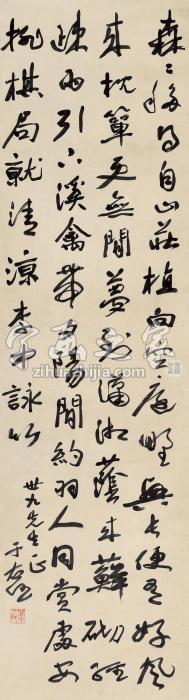 森〻移得自山莊植向空庭野興長便有好風
來枕簟更無閒夢到瀟湘蔭來蘚砌經
疎雨引下溪禽帶夕陽閒約羽人同賞處安
排棋局就清涼李中詠竹
世九先生正
于右任
zihuazhijia.com